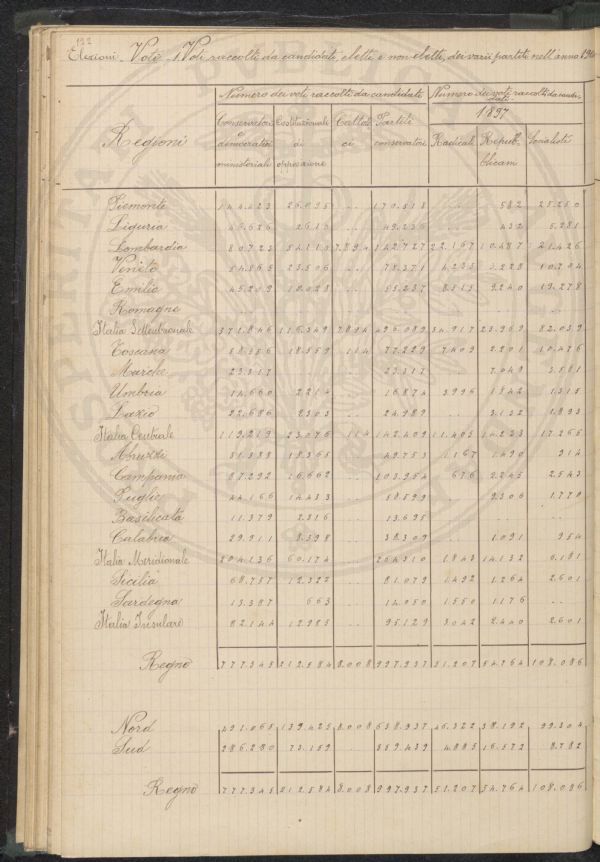 122
Elezioni. Voti. Voti raccolti da candidati, eletti e non eletti, dei varii partiti nell'anno
Numero dei voti raccolti da candidati Numero dei voti raccolti da candidati
1897
Regioni Conservatori democratici ministeriali Costituzionali di opposizione Cattolici Partiti conservatori Radicali Repubblicani Socialisti
Piemonte 144.423 26.095 .. 170.518 .. 582 25.250
Liguria 432 5.281
Lombardia 80.723 54.110 7.894 142.727 22.167 10.487 21.426
Veneto 54.865 23.506 .. 78.371 4.235 3.228 10.704
Emilia 45.209 10.028 .. 55.237 8.515 9.240 19.278
Romagne
Italia Settentrionale 371.846 116.349 7.894 496.089 34.917 23.969 82.039
Toscana 58.556 18.559 114 77.229 7.409 2.201 10.476
Marche 23.317 .. .. 23.317 .. 7.049 3.581
Umbria 14.660 2.214 .. 16.874 3.996 1.842 1.315
Lazio 22.686 2.303 .. 24.989 .. 3.132 1.893
Italia Centrale 119.219 23.076 114 142.409 11.405 14.223 17.265
Abruzzi 31.388 18.365 .. 49.753 1.167 1.490 914
Campania 87.292 16.662 .. 103.954 676 2.543
Puglie 44.166 14.433 .. 58.599 .. 1.770
Basilicata 11.379 2.316 .. 13.695
Calabria 29.911 8.398 .. 38.309 .. 1.091 954
Italia Meridionale 204.136 60.174 .. 264.310 1.843 14.132 6.181
Sicilia 68.757 12.322 .. 81.079 1.492 1.264 2.601
Sardegna 13.387 663 .. 14.050 1.550 1.176 ..
Italia Insulare 82.144 12.985 .. 95.129 3.042 2.440 2.601
Regno 777.345 212.584 8.008 997.937 51.207 54.764 108.086
Nord 491.065 139.425 8.008 638.937 46.322 38.192 99.304
Sud 286.280 73.159 .. 359.439 4885 16.572 8.782
Regno 777.345 212.584 8.008 997.937 51.207 54.764 108.086